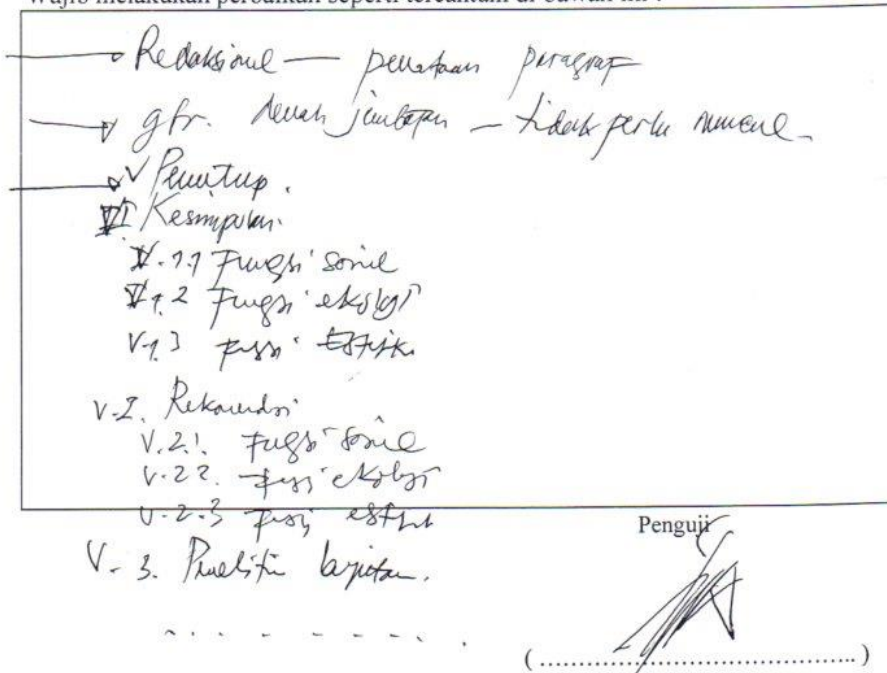 Wajib melakukan perbaikan seperti tercantum di bawah ini :
Redaksional — penataan paragraf
gbr. denah jembatan — tidak perlu
V Penutup.
Kesimpulan.
V.1.1 Fungsi sosial
V.1.2 Fungsi ekologi
V.1.3 Fungsi Estetik
V.2. Rekomendasi
V.2.1. Fungsi sosial
V.2.2. Fungsi ekologi
V.2.3 Fungsi estetik
V.3. Penelitian lanjutan.
Penguji
(........................................)